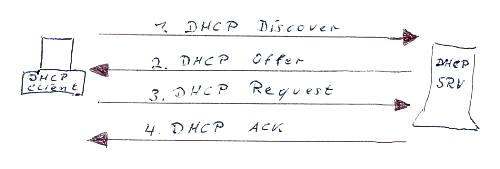 1. DHCP Discover
2. DHCP Offer
DHCP
Client
DHCP
SRV
3. DHCP Request
4. DHCP ACK